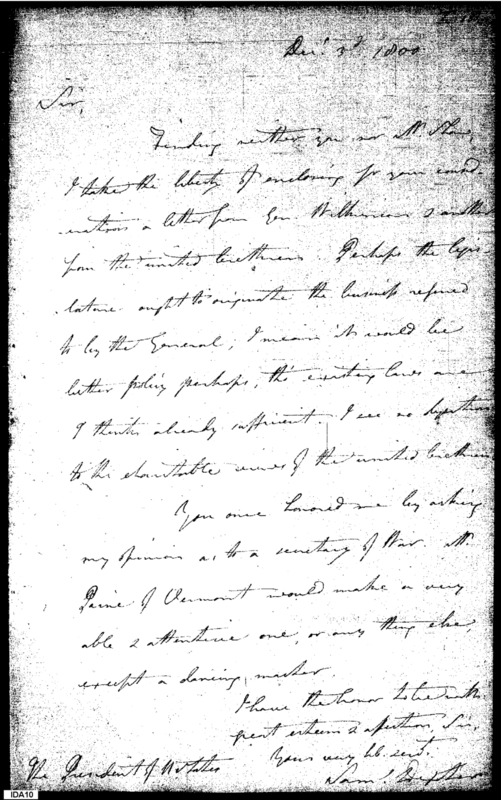 Decr. 3d. 1800
Sir,
Finding neither you nor Mr. Shaw,
I take the liberty of enclosing for your consid-
erations a letter from Gen. Wilkinson & another
from the united brethren. Perhaps the legis-
-lature ought to originate the business refered
to by the General, I mean it would be
better policy perhaps, tho' existing laws are
I think already sufficient. I see no objection
to the charitable views of the united brethren
You once honored me by asking
my opinion as to a secretary of War. Mr.
Paine of Vermont would make a very
able & attentive one, or any thing else,
except a dancing master.
I have the honor to be with
great esteem & affection, Sir,
Your very hb. servt.
Saml. Dexter
The President of U States
IDA10